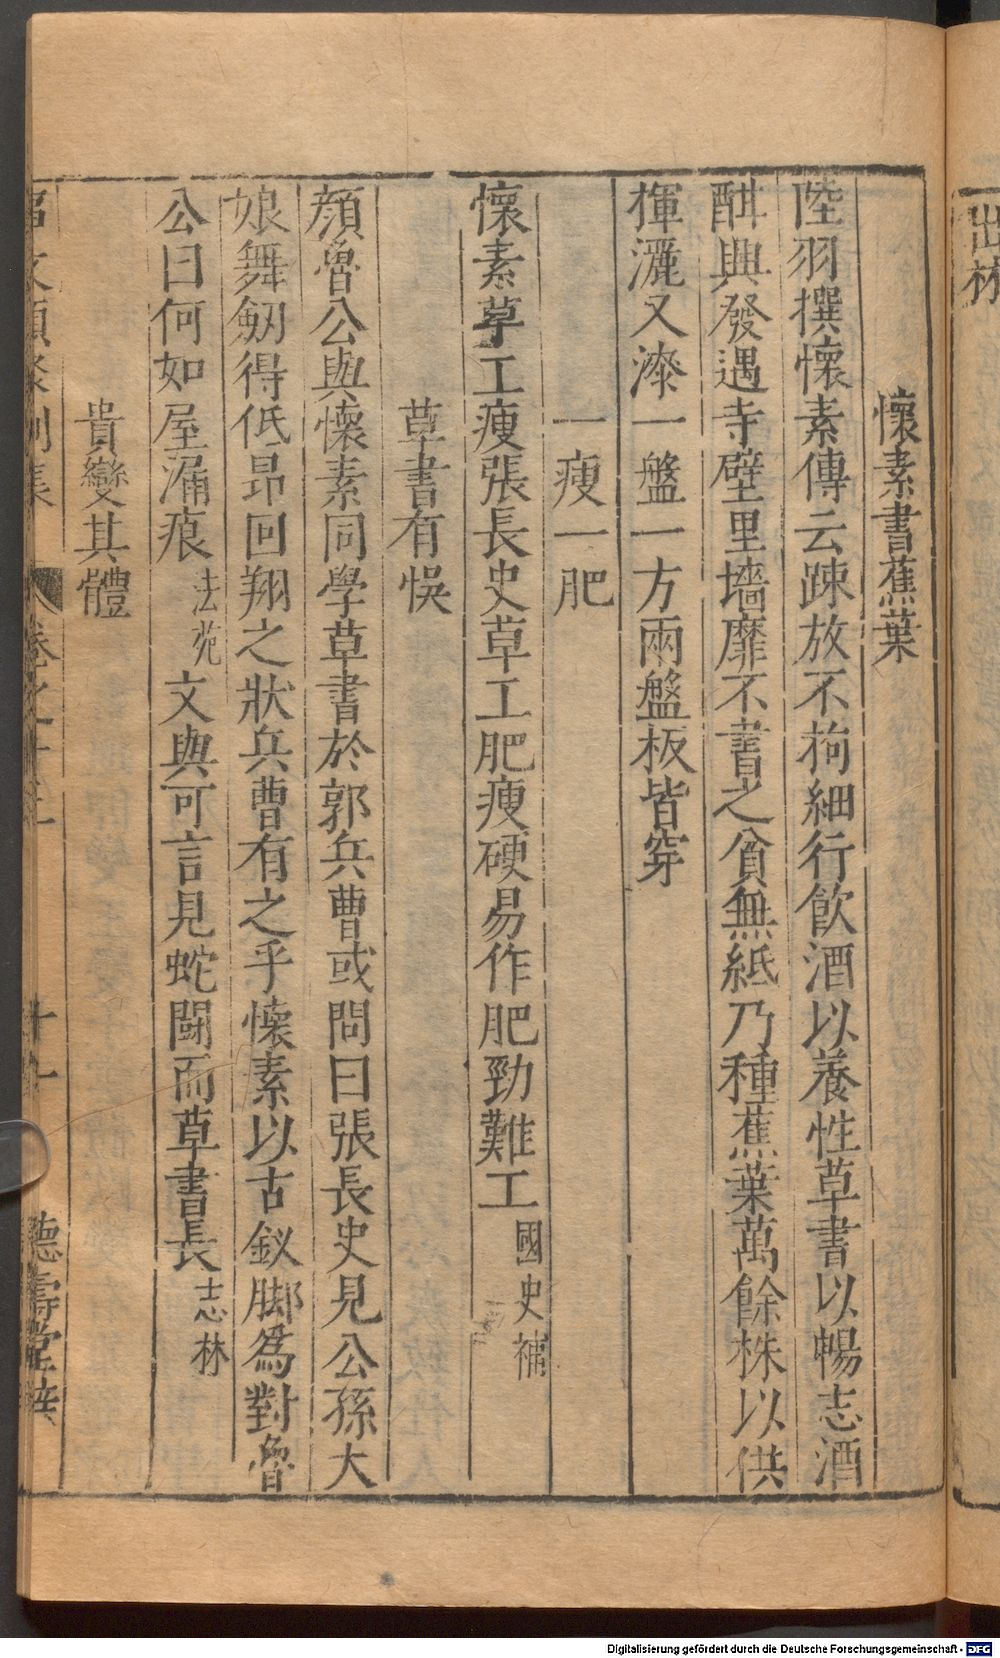 出林
懷素書蕉葉
陸羽撰懷素傳云疎放不拘細行飲酒以養性草書以暢志酒
酣興發遇寺壁里墻靡不書之貧無紙乃種蕉葉萬餘株以供
揮灑又漆一盤一方兩盤板皆穿
一瘦一肥
懷素草工瘦張長史草工肥瘦硬易作肥勁難工國史補
草書有悞
顏魯公與懷素同學草書於郭兵曹或問曰張長史見公孫大
娘舞劒得低昂回翔之狀兵曹有之乎懷素以古釵脚爲對魯
公曰何如屋漏痕法苑文與可言見蛇鬪而草書長志林
貴變其體
文類聚別集 卷之十二 十一 德壽堂梓
Digitalisierung gefördert durch die Deutsche Forschungsgemeinschaft - DFG